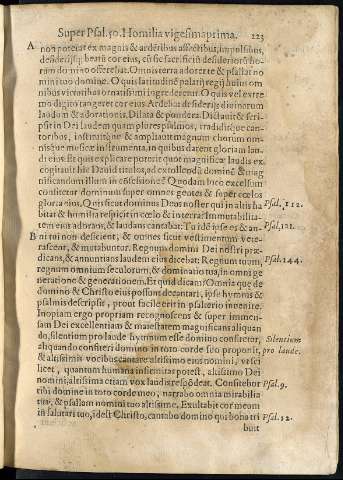 Super Psal. 50. Homilia vigesimaprima. 223
A non poterat ex magnis & ardētibus affectibus, impulsibus,
desiderijsq; beatū cor eius, cū sic sacrificiū desideriorū ho-
rum domino offerebat. Omnis terra adoret te & psallat no
mini tuo domine. O quis latitudinē palatij regij huius om
nibus victoribus ornatissimi ingrederetur. O quis vel extre
mo digito tangeret cor eius. Ardebat desiderijs diuinorum
laudum & adorationis. Dilata & pondera. Dictauit & scri-
psit in Dei laudem quam plures psalmos, tradiditque can-
toribus, instituitque & ampliauit magnum chorum om-
nisque musicæ instrumenta, in quibus daretent gloriam lau-
di eius. Et quis explicare poterit quot magnificæ laudis ex-
cogitauit hic Dauid titulos, ad extollendā dominū & mag
nificandum illum in cōfessione? Quodam loco excelsum
confitetur dominum super omnes gentes & super cœlos
gloria eius. Quis sicut dominus Deus noster qui in altis ha Psal. 112.
bitat & humilia respicit in cœlo & in terra? Immutabilita-
tem eius adorans, & laudans cantabat. Tu idē ipse es & an- Psal. 101.
B ni tui non deficient, & omnes sicut vestimentum vete-
rascent, & mutabuntur. Regnum domini Dei nostri præ-
dicans, & annuntians laudem ei dicebat: Regnum tuum, Psal. 144.
regnum omnium seculorum, & dominatio tua, in omni ge
neratione & generationem. Et quid dicam? Omnia quæ de
domino & Christo eius possunt decantari, ipse hymnis &
psalmis descripsit, prout facile erit in psalterio inuenire.
Inopiam ergo propriam recognoscens & super immen-
sam Dei excellentiam & maiestatem magnificans aliquan
do, silentium pro laude hymnum esse domino confitetur, Silentium
aliquando confiteri domino in toto corde suo proponit, pro laude.
& altissimis vocibus cantare altissimo eius nomini, vesci
licet, quantum humana infirmitas potest, altissimo Dei
nomini, altissima etiam vox laudis respōdeat. Confitebor Psal. 9.
tibi domine in toto corde meo, narrabo omnia mirabilia
tua, & psallam nomini tuo altissime. Exultabit cor meum
in salutari tuo, idest Christo, cantabo domino qui bona tri Psal. 12.
buit